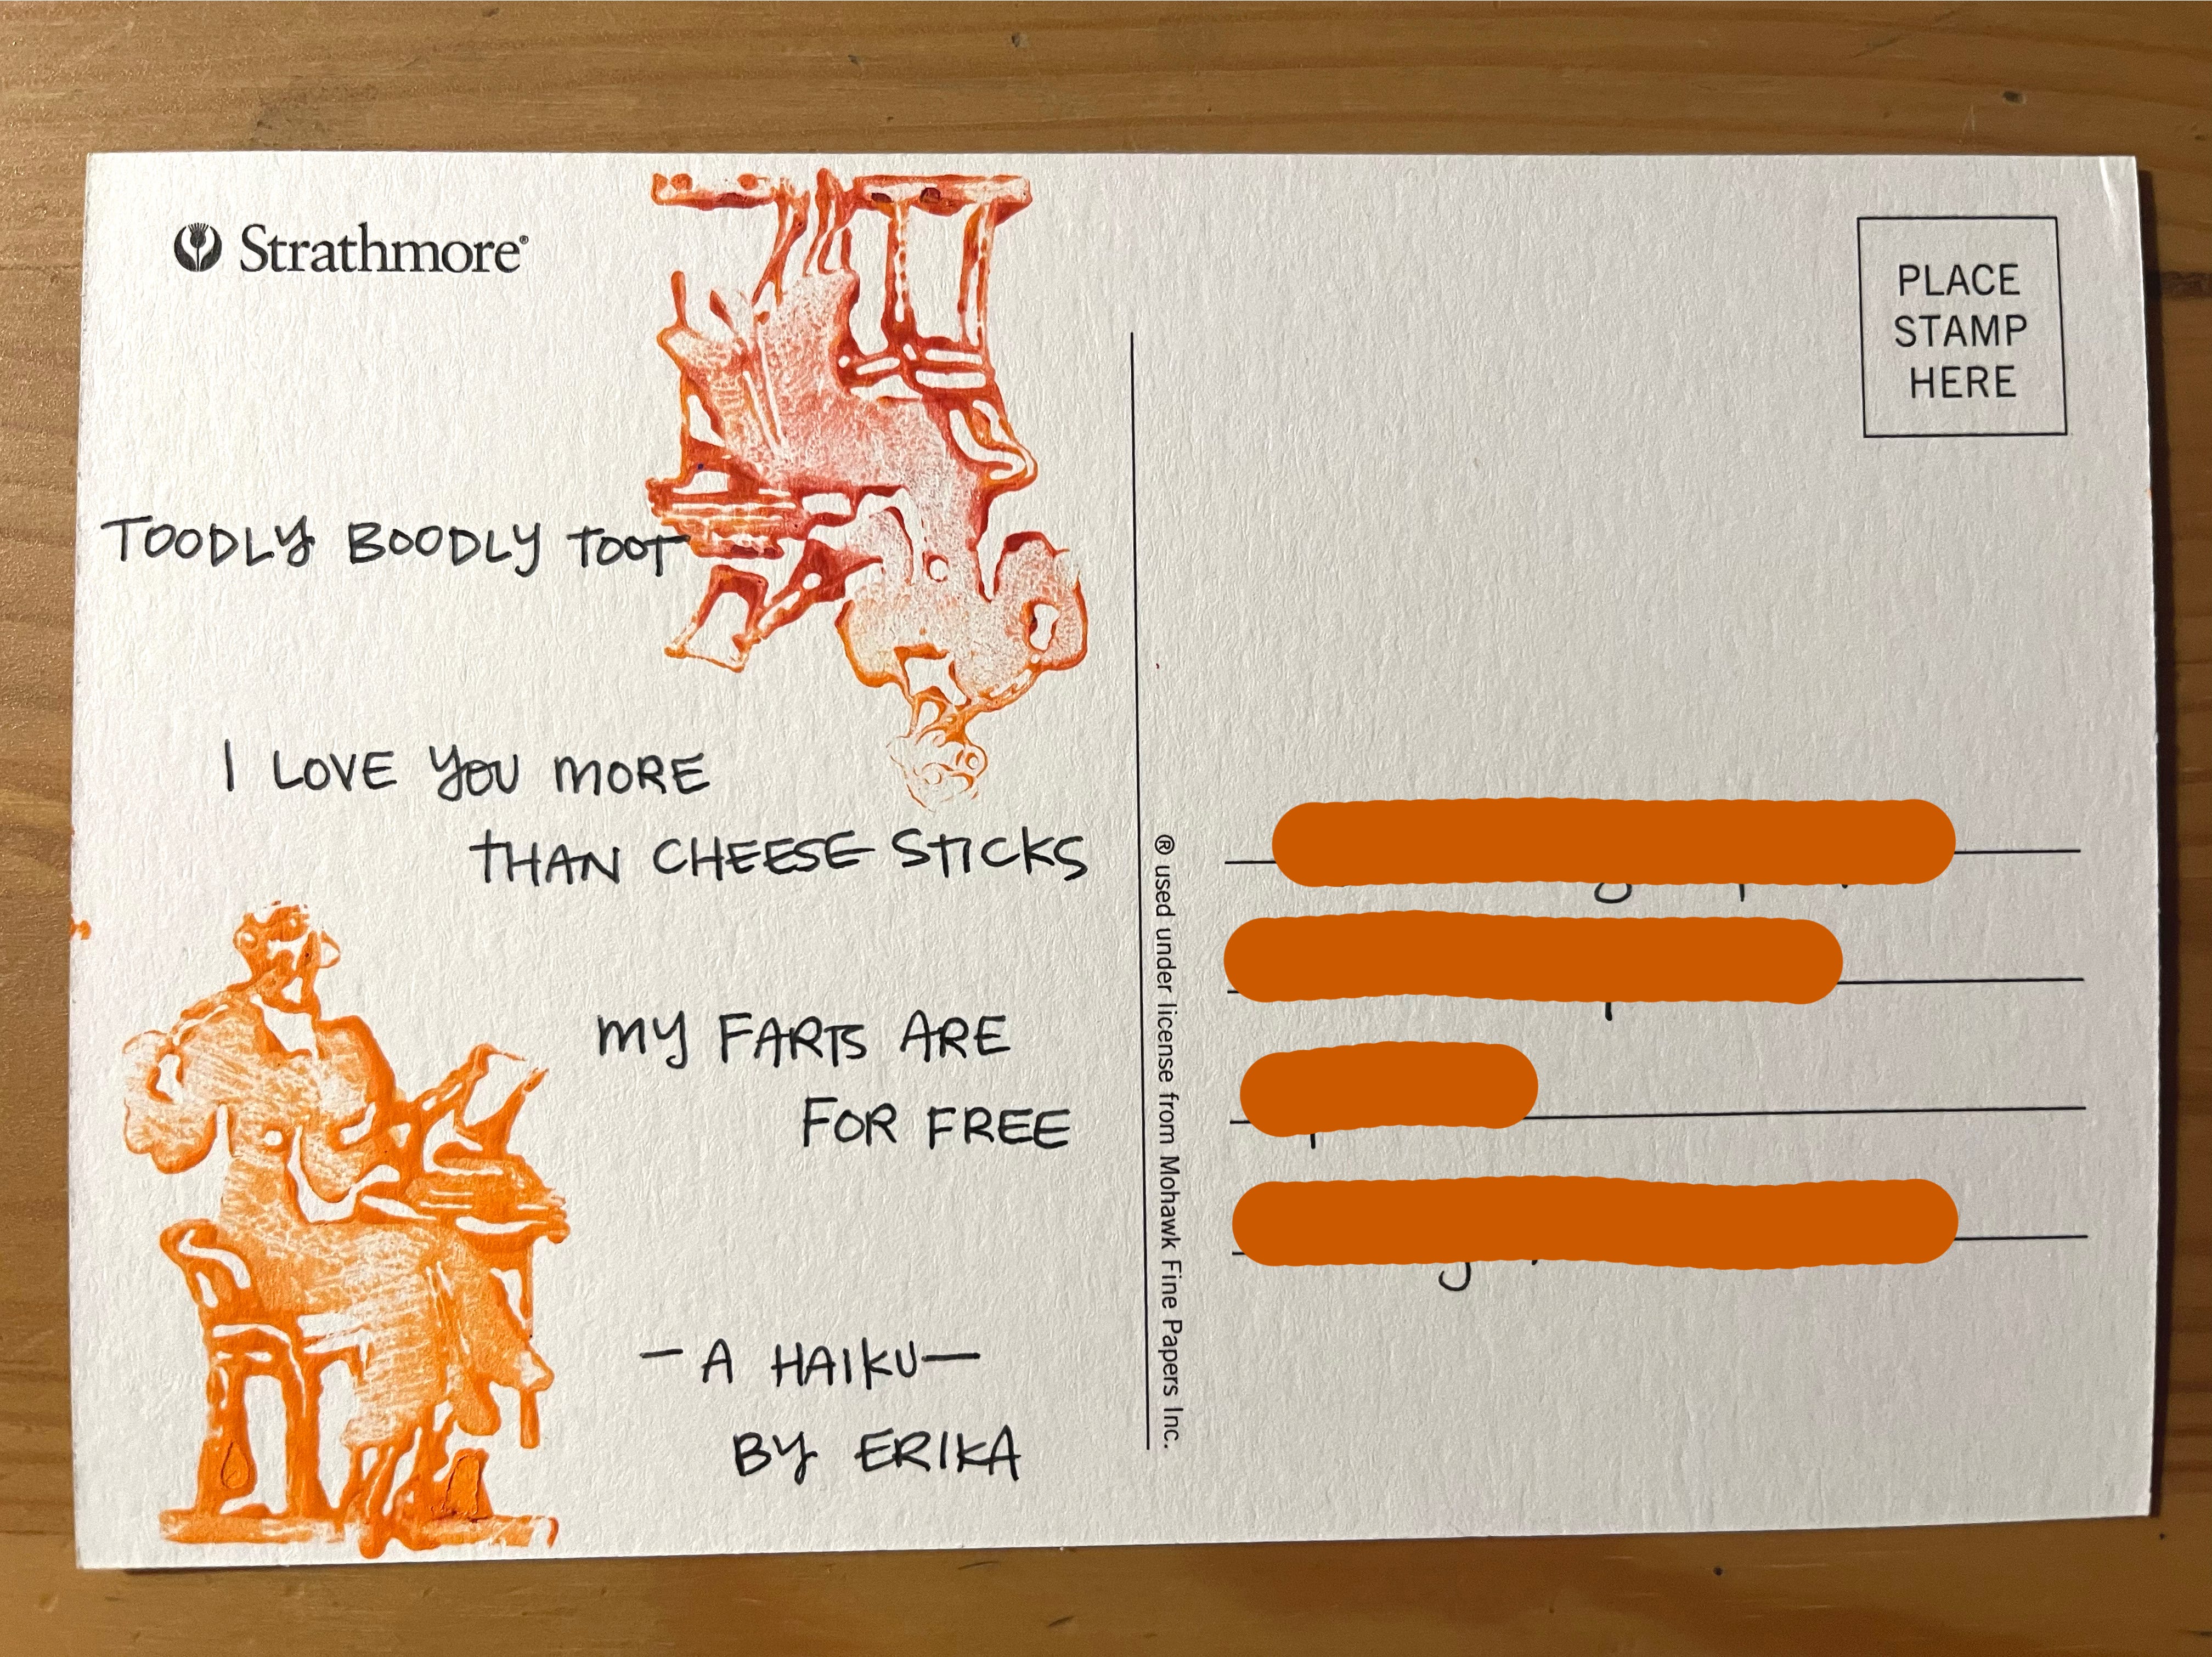 Strathmore®
PLACE
STAMP
HERE
TOODLY BOODLY TOOT
I LOVE YOU MORE
THAN CHEESE STICKS
MY FARTS ARE
FOR FREE
— A HAIKU —
BY ERIKA
® used under license from Mohawk Fine Papers Inc.